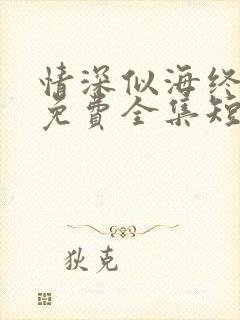 情深似海终
免費全集短
狄克